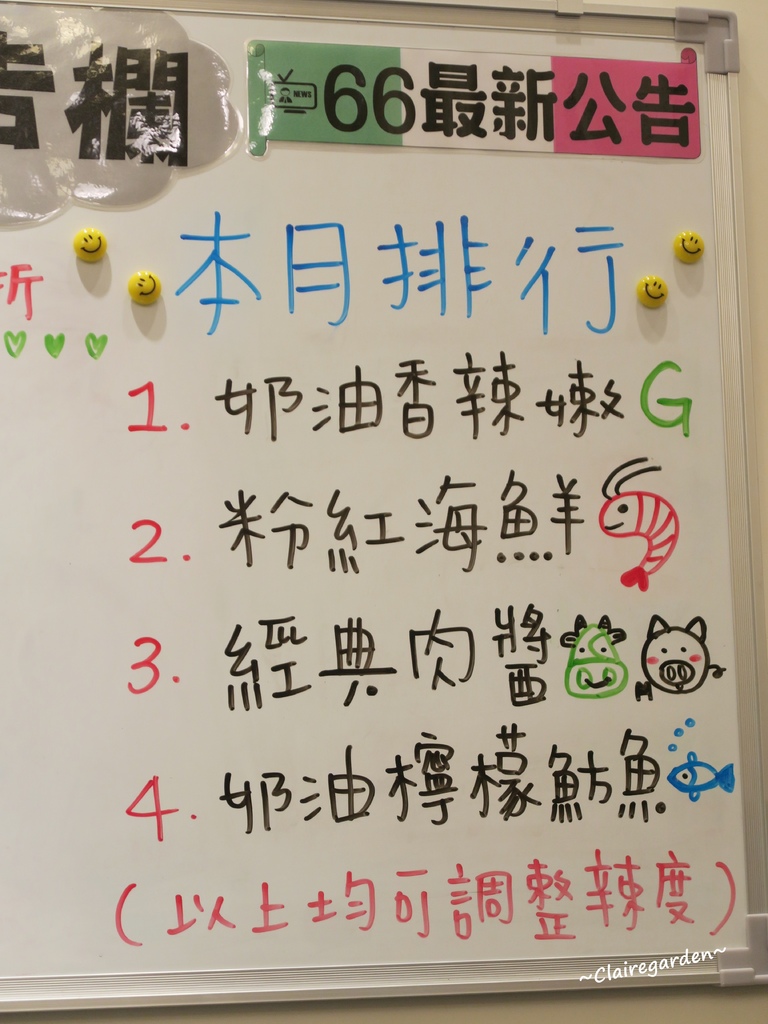 告欄
NEWS
66最新公告
折
本月排行
1. 奶油香辣嫩G
2. 粉紅海鮮
3. 經典肉醬
4. 奶油檸檬魴魚
(以上均可調整辣度)
~Clairegarden~